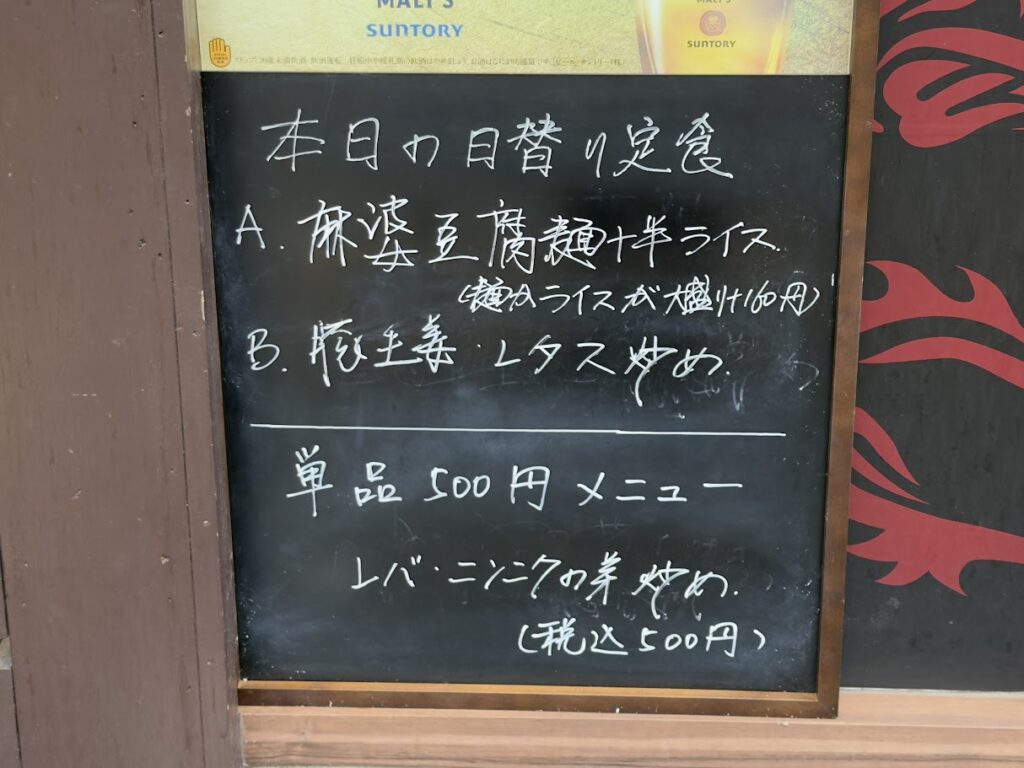 MALT'S
SUNTORY
MALT'S
SUNTORY
本日の日替り定食
A. 麻婆豆腐麺+半ライス
(麺かライスが大盛り+160円)
B. 豚生姜・レタス炒め
単品500円メニュー
レバ・ニンニクの芽炒め
(税込500円)